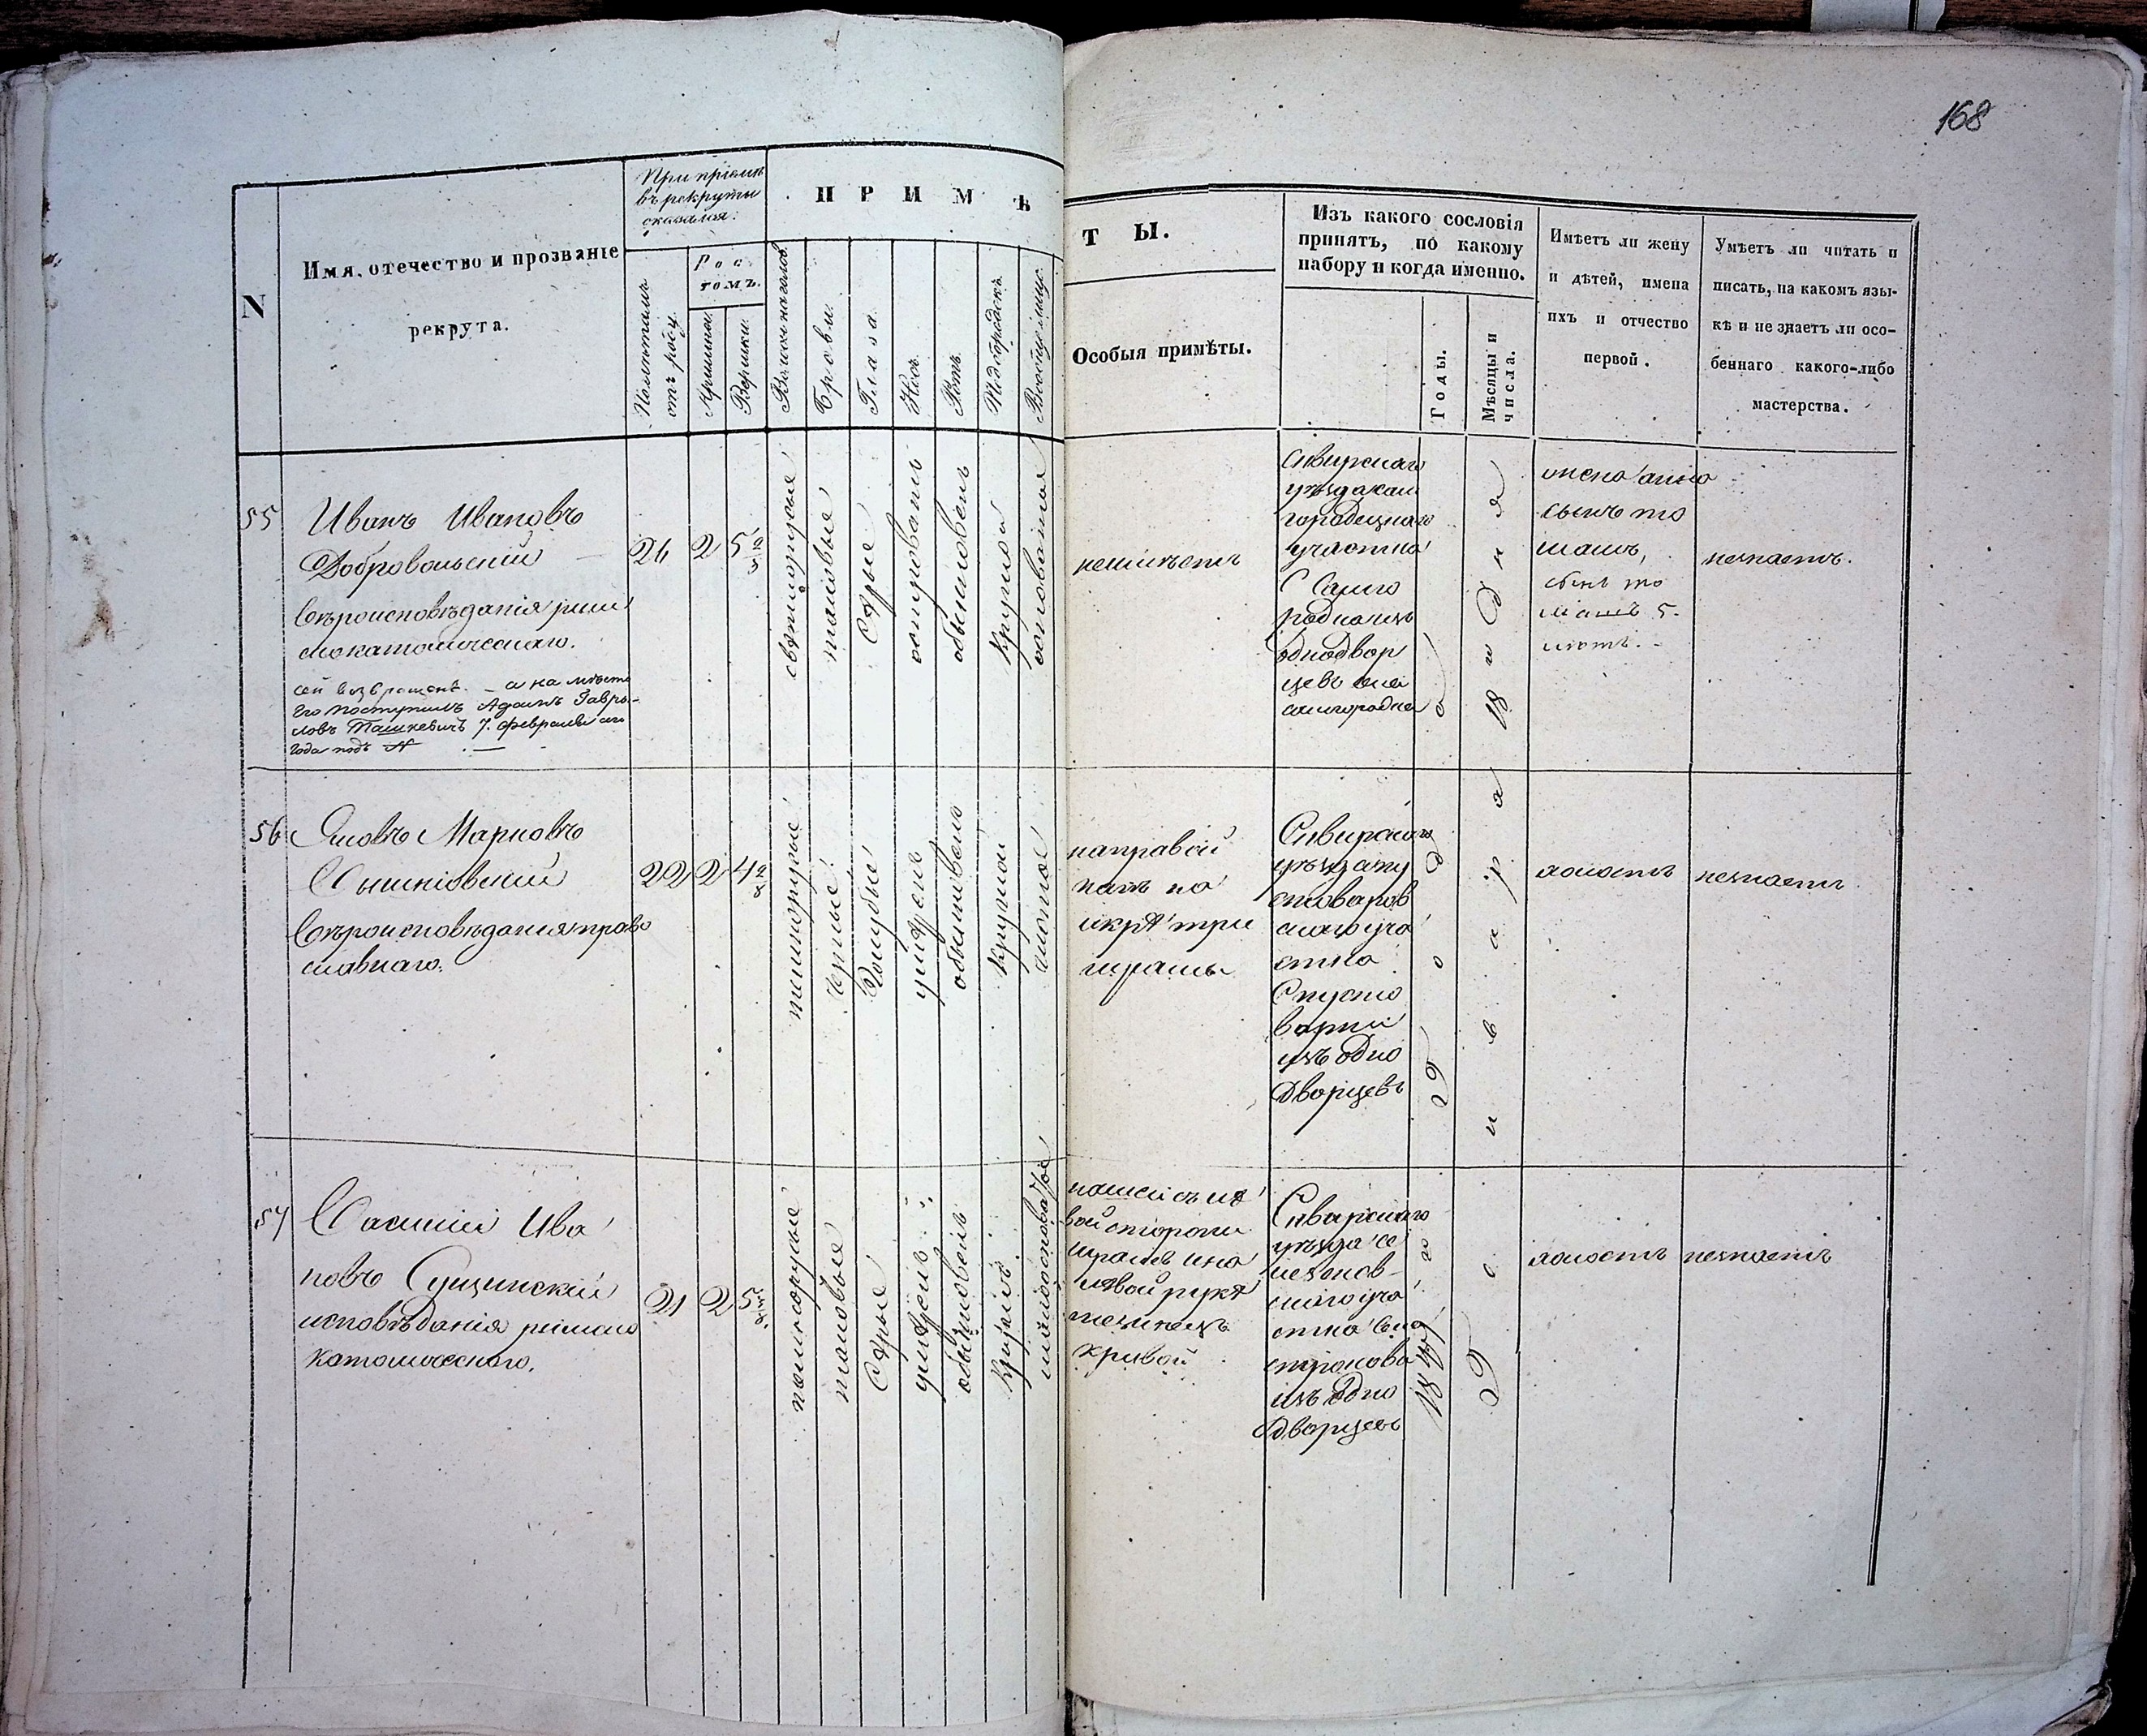 168
N
Имя, отечество и прозваніе
рекрута.
При пріемѣ
въ рекруты
оказался:
Колькихъ лѣтъ
отъ роду.
Рос
томъ.
Аршины.
Вершки.
ПРИМѢ
Волосы на голов.
Брови.
Глаза.
Носъ.
Ротъ.
Подбородокъ.
Вообще лице.
ТЫ.
Особыя примѣты.
Изъ какого сословія
принятъ, по какому
набору и когда именно.
Годы.
Мѣсяцы и
числа.
Имѣетъ ли жену
и дѣтей, имена
ихъ и отчество
первой.
Умѣетъ ли читать и
писать, на какомъ язы-
кѣ и не знаетъ ли осо-
беннаго какого-либо
мастерства.
55
Иванъ Ивановъ
Добровольскій
вѣроисповѣданія рим
скокатолическаго.
сей возвращенъ. — а на мѣсто
его поступилъ Адамъ Гавры-
ловъ Ташкевичъ 7. февраля сего
года подъ №
24
2
5
свѣтлорусые
таковые
Сѣрые
обыкновенъ
круглой
неимѣетъ
Сквирскаго
уѣзда сам
городецкаго
участка
С Самго
родка изъ
однодвор
цевъ
самгородка
жена анна
сынъ то
машъ,
сынъ то
машъ 5.
лѣтъ.
незнаетъ.
56
Яковъ Марковъ
Вышковскій
вѣроисповѣданія право
славнаго.
22
2
4 2/8
темнорусые
черные
Голубые
умѣренъ
обыкновенъ
круглой
чистое
направой
натъ на
икрѣ три
шрамы
Сквирскаго
уѣзда пу
стоваров
скаго уча
стка
С пусто
варни
изъ одно
дворцевъ
холостъ
незнаетъ
57
Василій Ива
новъ Сущинскій
исповѣданія римско
католическаго.
21
2
5
темнорусые
таковые
Сѣрые
умѣренъ
обыкновенъ
круглой
нашеи съ лѣ
вой стороны
шрамъ и на
лѣвой рукѣ
мезинецъ
кривой
Сквирскаго
уѣзда се
лезенов-
скаго уча
стка села
строкова
изъ одно
дворцевъ
холостъ
незнаетъ
1847
года
января
18 и дня
29